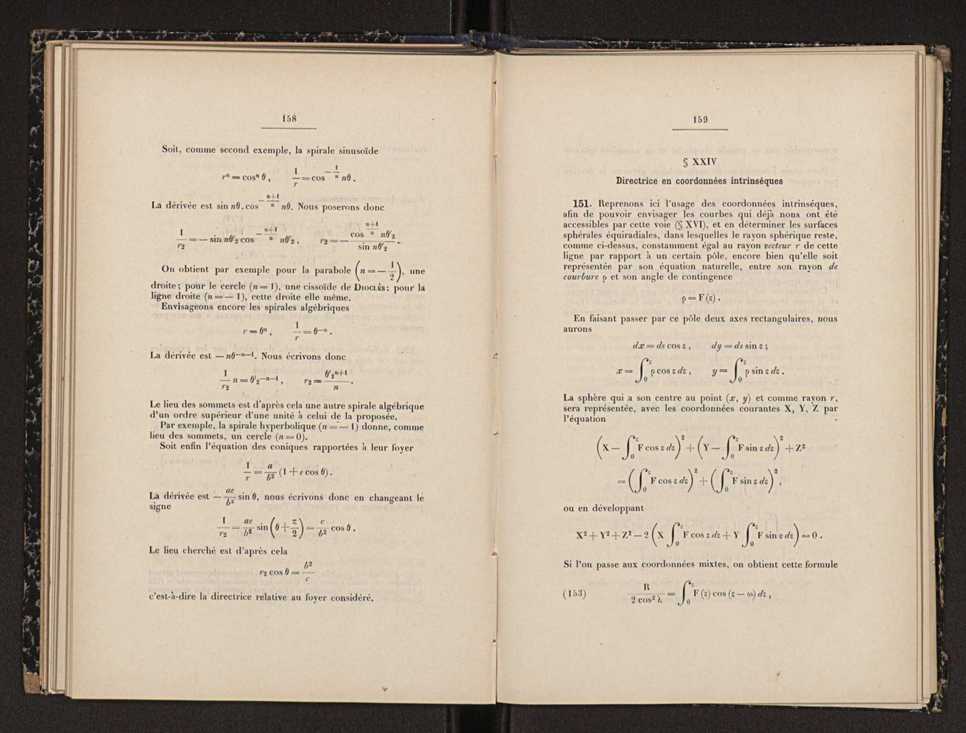 158
Soit, comme second exemple, la spirale sinusoïde
rⁿ = cosⁿ θ ,   1/r = cos^(−1/n) nθ .
La dérivée est sin nθ. cos^(−(n+1)/n) nθ. Nous poserons donc
1/r₂ = − sin nθ'₂ cos^(−(n+1)/n) nθ'₂ ,   r₂ = − cos^((n+1)/n) nθ'₂ / sin nθ'₂ .
On obtient par exemple pour la parabole (n = − 1/2), une
droite ; pour le cercle (n = 1), une cissoïde de DIOCLÈS ; pour la
ligne droite (n = − 1), cette droite elle même.
Envisageons encore les spirales algébriques
r = θⁿ ,   1/r = θ⁻ⁿ .
La dérivée est − nθ⁻ⁿ⁻¹. Nous écrivons donc
1/r₂ = n θ'₂⁻ⁿ⁻¹ ,   r₂ = θ'₂ⁿ⁺¹ / n .
Le lieu des sommets est d'après cela une autre spirale algébrique
d'un ordre supérieur d'une unité à celui de la proposée.
Par exemple, la spirale hyperbolique (n = − 1) donne, comme
lieu des sommets, un cercle (n = 0).
Soit enfin l'équation des coniques rapportées à leur foyer
1/r = a/b² (1 + e cos θ) .
La dérivée est − ae/b² sin θ, nous écrivons donc en changeant le
signe
1/r₂ = ae/b² sin (θ + π/2) = c/b² cos θ .
Le lieu cherché est d'après cela
r₂ cos θ = b²/c
c'est-à-dire la directrice relative au foyer considéré.
159
§ XXIV
Directrice en coordonnées intrinsèques
151. Reprenons ici l'usage des coordonnées intrinsèques,
afin de pouvoir envisager les courbes qui déjà nous ont été
accessibles par cette voie (§ XVI), et en déterminer les surfaces
sphérales équiradiales, dans lesquelles le rayon sphérique reste,
comme ci-dessus, constamment égal au rayon vecteur r de cette
ligne par rapport à un certain pôle, encore bien qu'elle soit
représentée par son équation naturelle, entre son rayon de
courbure ρ et son angle de contingence
ρ = F (z) .
En faisant passer par ce pôle deux axes rectangulaires, nous
aurons
dx = ds cos z ,   dy = ds sin z ;
x = ∫₀ᶻ ρ cos z dz ,   y = ∫₀ᶻ ρ sin z dz .
La sphère qui a son centre au point (x, y) et comme rayon r,
sera représentée, avec les coordonnées courantes X, Y, Z par
l'équation
(X − ∫₀ᶻ F cos z dz)² + (Y − ∫₀ᶻ F sin z dz)² + Z²
= (∫₀ᶻ F cos z dz)² + (∫₀ᶻ F sin z dz)² ,
ou en développant
X² + Y² + Z² − 2 (X ∫₀ᶻ F cos z dz + Y ∫₀ᶻ F sin z dz) = 0 .
Si l'on passe aux coordonnées mixtes, on obtient cette formule
(153)   R / 2 cos² λ = ∫₀ᶻ F (z) cos (z − ω) dz ,